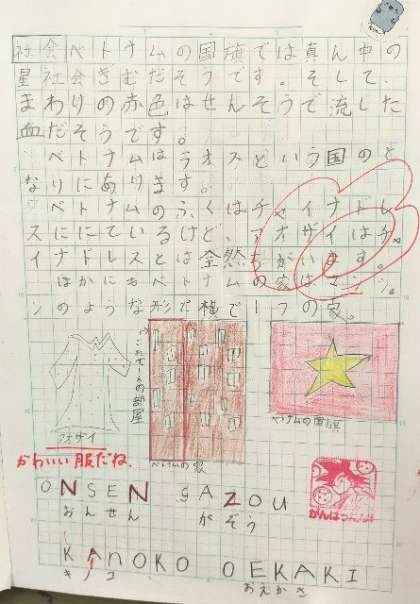 社会ベトナムの国旗では真ん中の
星社会ぎむだそうです。そして、
まわりの赤色はせんそうで流した
血だそうです。
ベトナムはラオスという国のと
なりにあります。
ベトナムのふくはチャイナドレ
スににているけど、アオザイはチャ
イナドレスとは全然ちがいます。
ほかにもベトナムの家はマンション
のような形で横で1つの家。
アオザイ
かわいい服だね。
ベトナムの家
ベトナムの国旗
がんばったね
ONSEN GAZOU
おんせん がぞう
KANOKO OEKAKI
キノコ おえかき